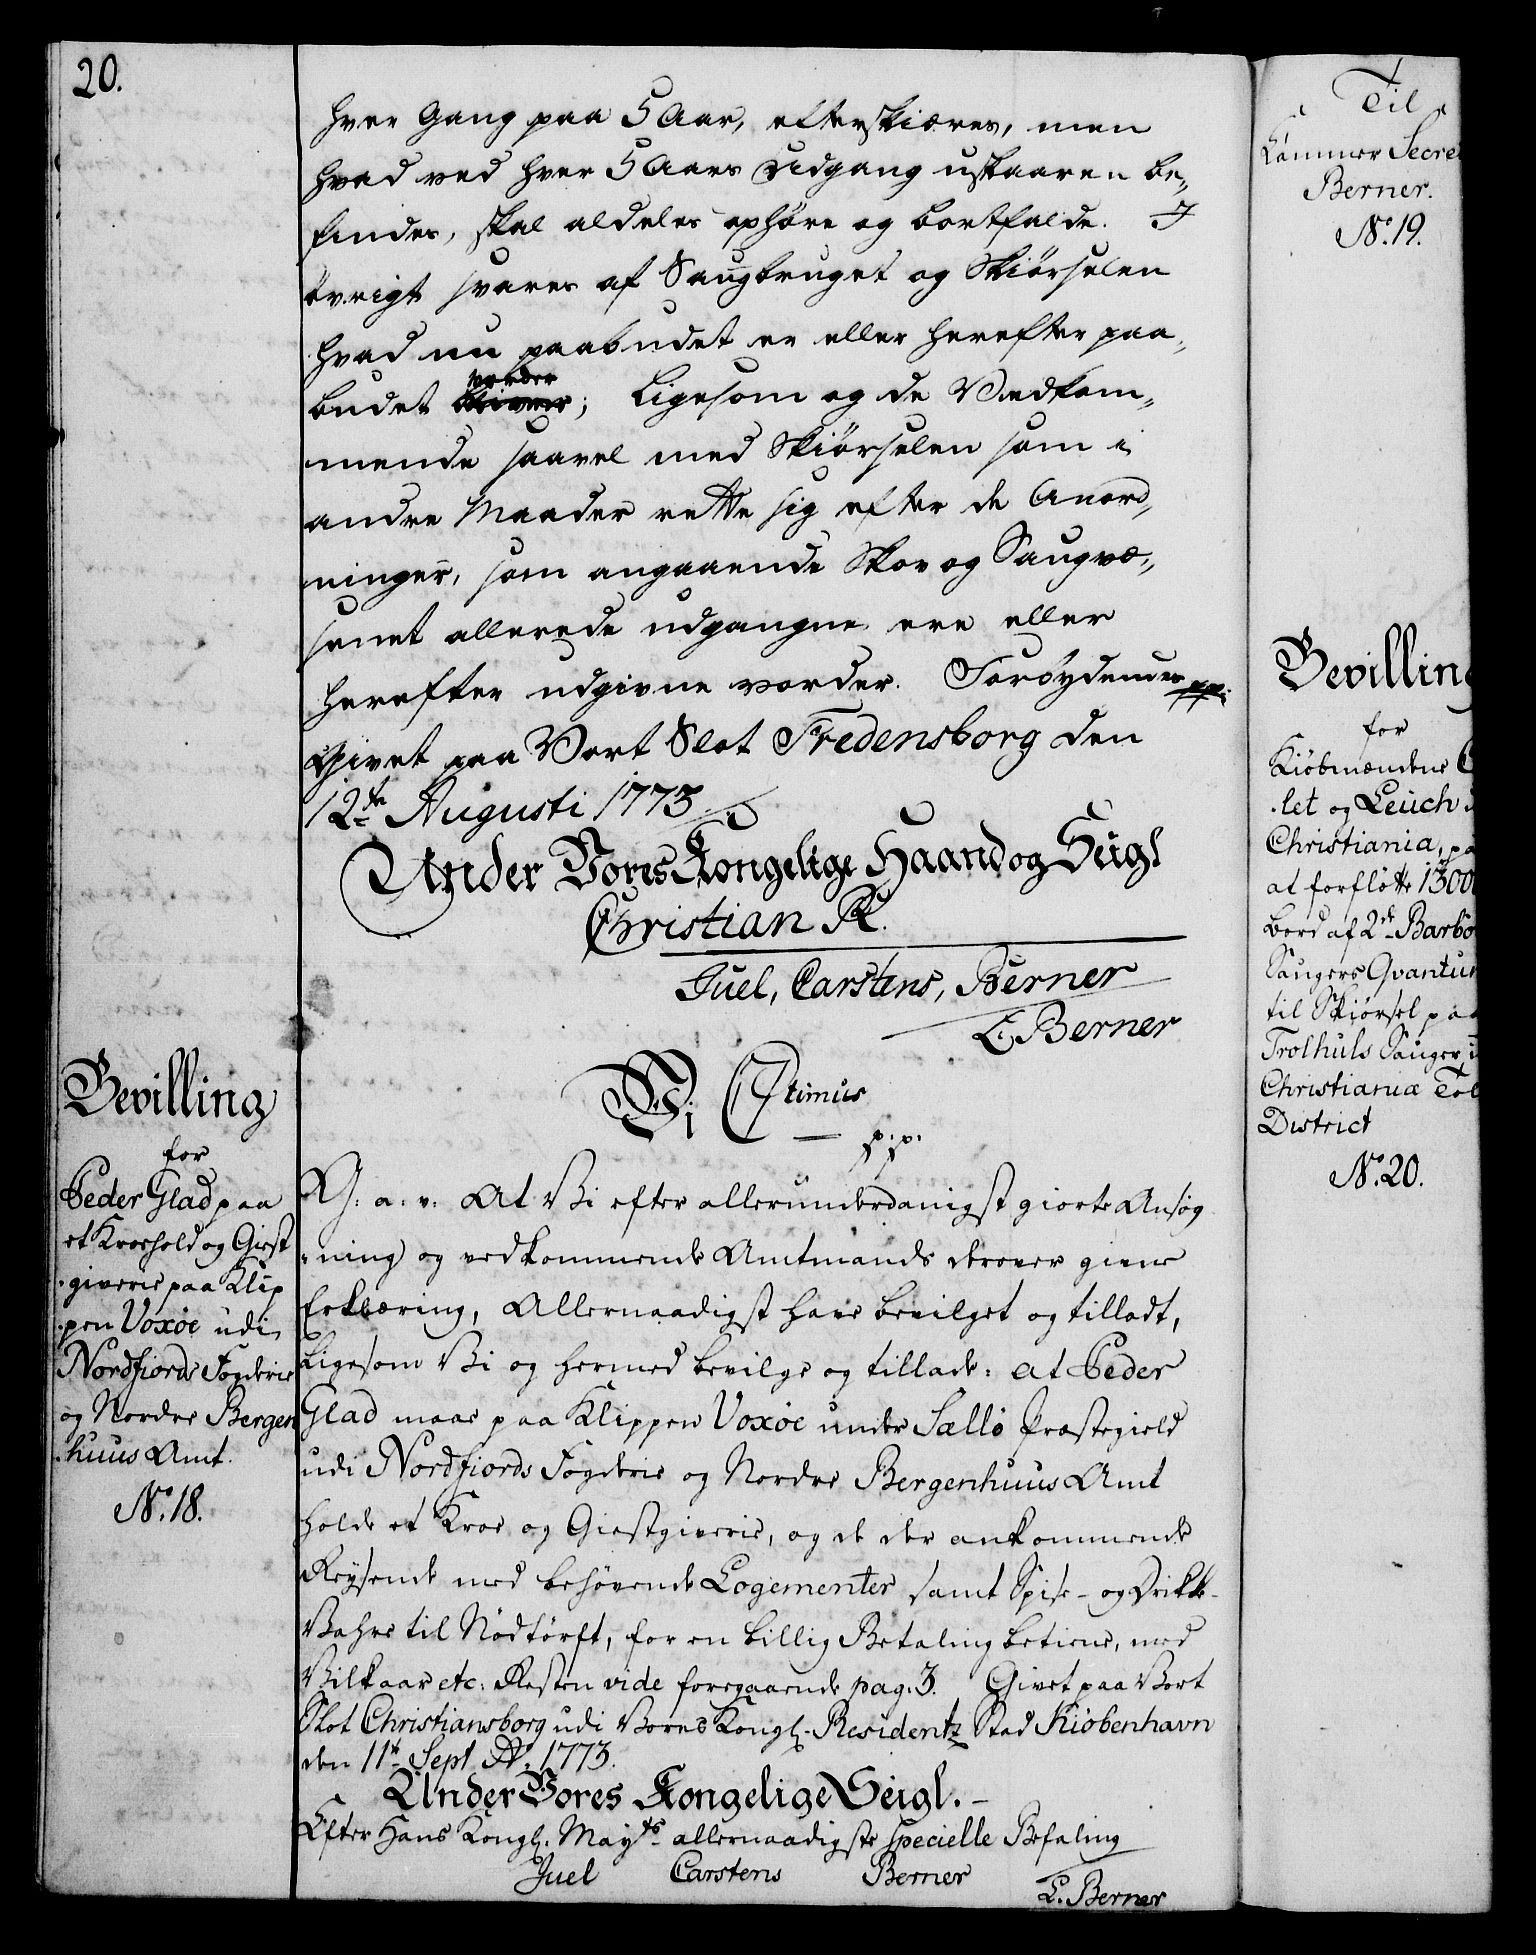 20.
hver Gang paa 5 Aar, efterskiæres, men
hvad ved hver 5 Aars Udgang uskaaren be-
findes, skal aldeles ophøre og bortfalde. I
øvrigt svares af Saugbruget og Skiørselen
hvad nu paabudet er eller herefter paa-
vorder
budet bliver; ligesom og de Vedkom-
mende saavel med Skiørselen som i
andre Maader rette sig efter de Anord-
ninger, som angaaende Skov og Saugvæ-
senet allerede udgangne ere eller
herefter udgivne vorder. Forbydendes pp.
Givet paa Vort Slot Fredensborg den
12te Augusti 1773.
Under Vores Kongelige Haand og Seigl
Christian R.
Juel, Carstens, Berner
L. Berner
Bevilling
for
Peder Glad paa
et Kroehold og Giest
-giverie paa Klip
-pen Voxøe udi
Nordfiords Fogderie
og Nordre Bergen
-huus Amt.
No. 18.
Vi C 7timus
p. p.
G: a: v: At Vi efter allerunderdanigst giorte Ansøg
-ning og vedkommende Amtmands derover givne
Erklæring, Allernaadigst have bevilget og tilladt,
ligesom Vi og hermed bevilge og tillade: at Peder
Glad maae paa Klippen Voxøe under Sællø Præstegield
udi Nordfiords Fogderie og Nordre Bergenhuus Amt
holde et Kroe og Giestgiverie, og de der ankommende
Reysende med behøvende Logementer samt Spise- og Drikke-
Vahre til Nødtørft, for en billig Betaling betiene, med
Vilkaar etc: Resten vide foregaaende pag. 3. Givet paa Vort
Slot Christiansborg udi Vores Kongl. Residentz Stad Kiøbenhavn
den 11te Sept Ao. 1773.
Under Vores Kongelige Seigl.
Efter Hans Kongl. Mayts allernaadigste specielle Befaling
Juel Carstens Berner
L. Berner
Til
Kammer Secre
Berner.
No. 19.
Bevilling
for
Kiøbmændene C
-let og Leuch
Christiania, pa
at forfløtte 1300
bord af 2de Barbø
Saugers Qvantum
til Skiørsel paa
Trolhuls Sauger
Christianiæ Tol
District
No. 20.